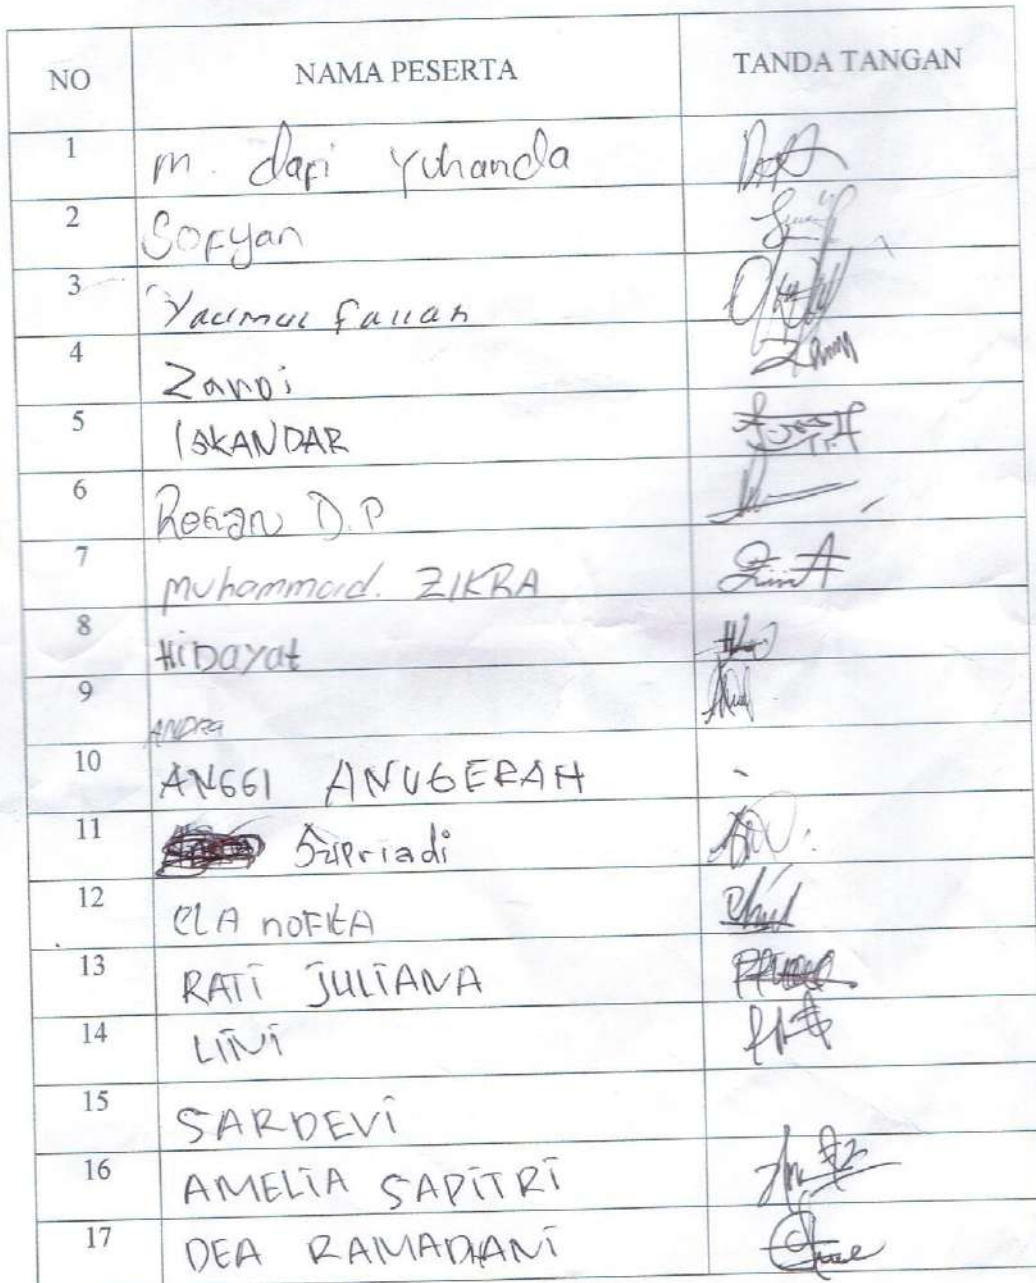 NO NAMA PESERTA TANDA TANGAN
1 m. dapi Yuhanda
2 Sofyan
3 Yaumul fallah
4 Zanpi
5 ISKANDAR
6 D.P
7 Muhammad. ZIKRA
8 HiDayat
9 ANDRA
10 ANGGI ANUGERAH -
11 Sapriadi
12 ELA NOFITA
13 RATI JULIANA
14 LINI
15 SARDEVI
16 AMELIA SAPITRI
17 DEA RAMADHANI